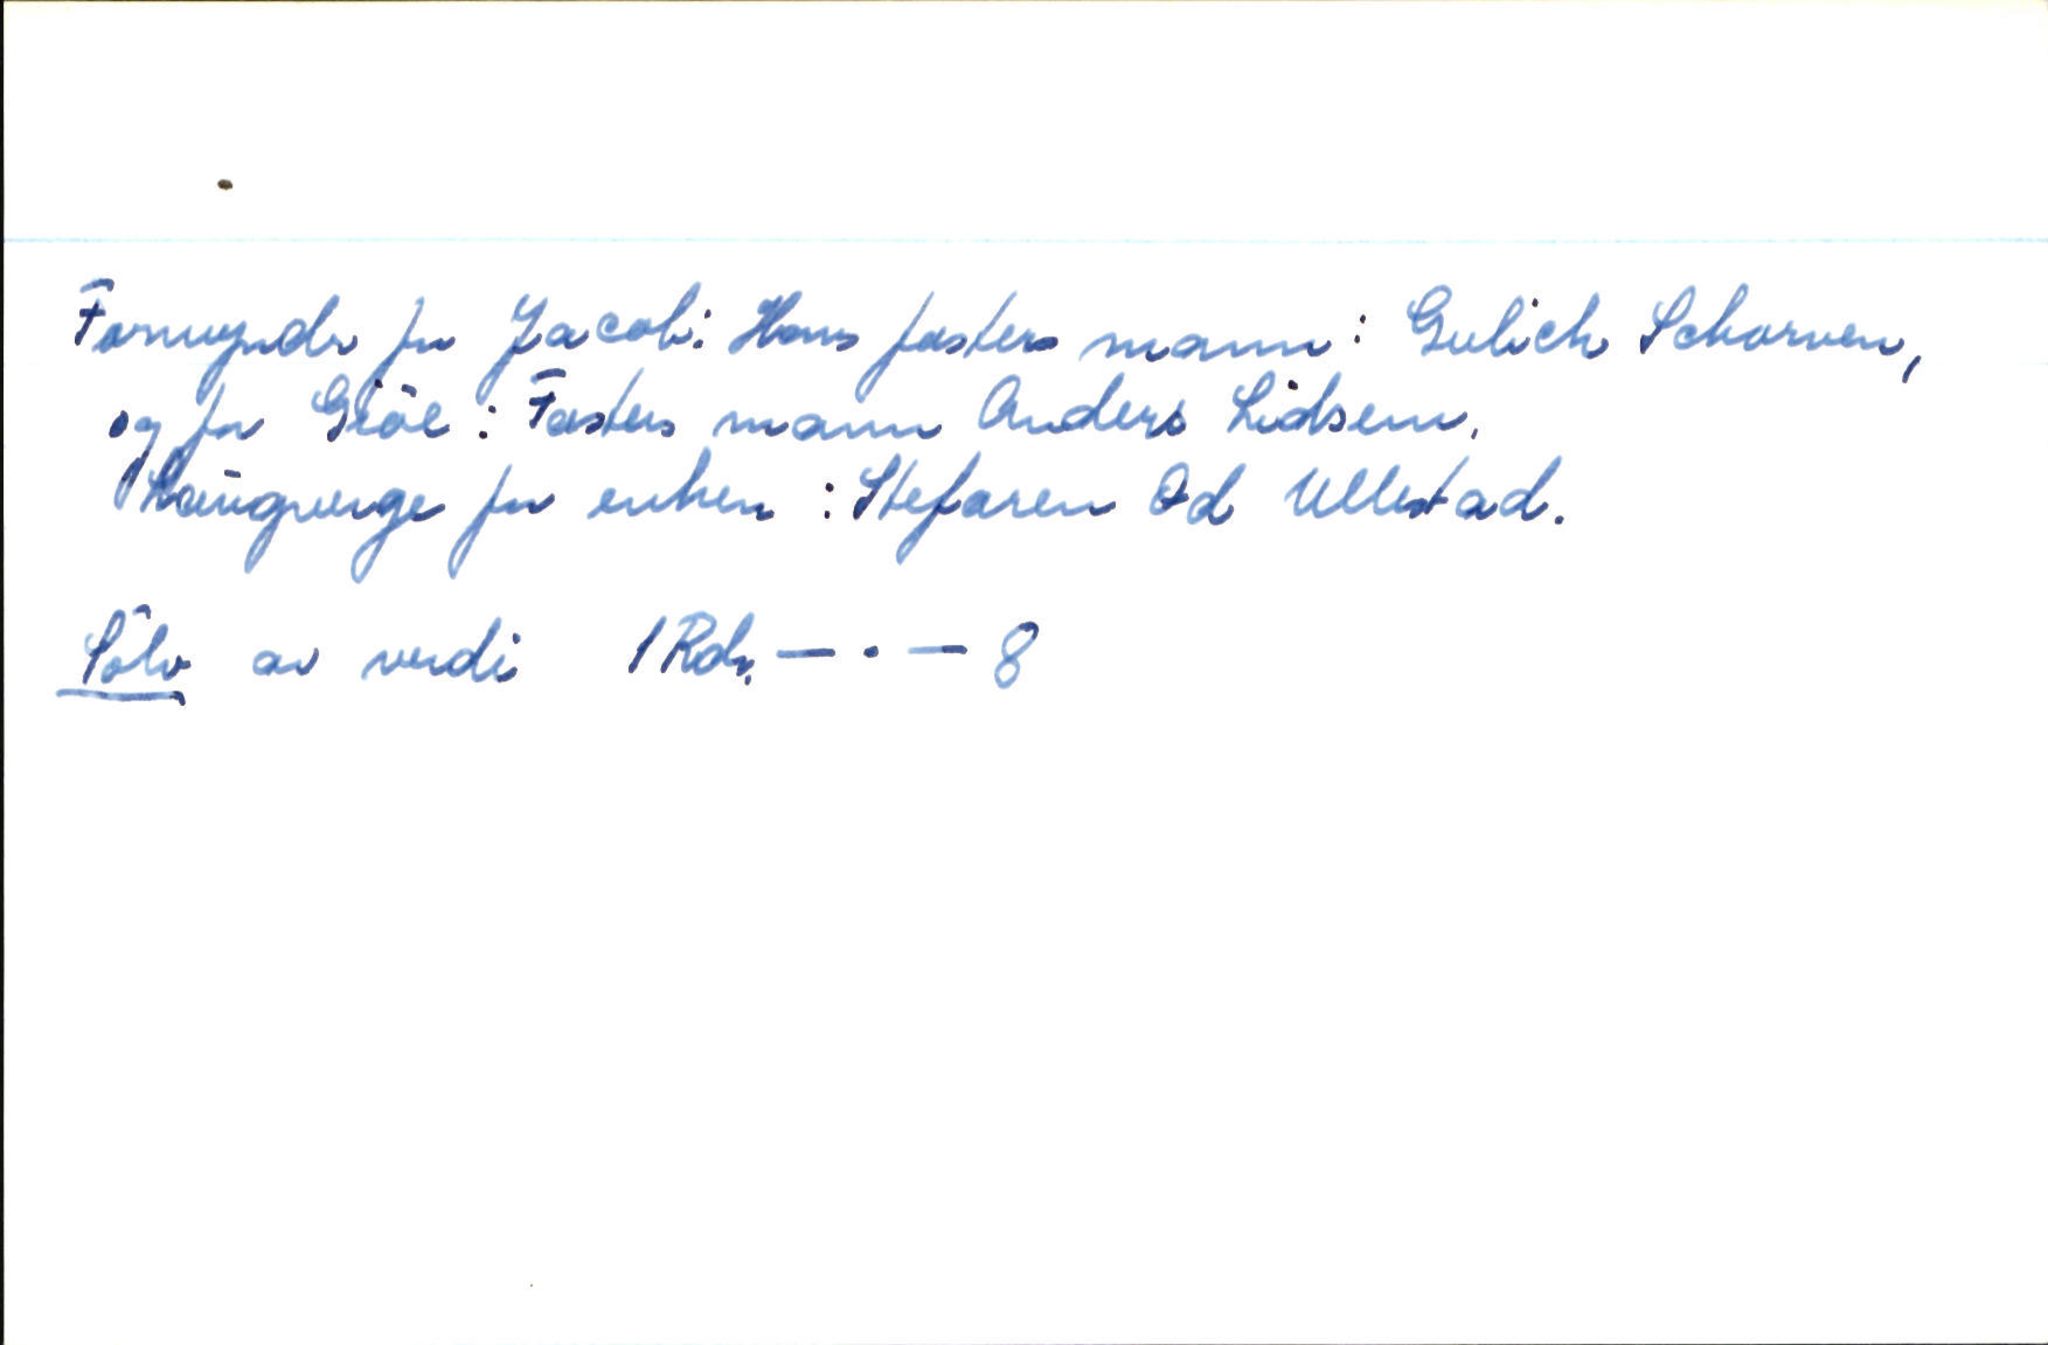 Formyndr for Jacob: Hans fasters mann: Gulich Schorven,
og for Giöe: Fasters mann Anders Lidsem,
Laugverge for enken: Stefaren Od Ullestad.
Sölv av verdi 1 Rdr. — . — 8